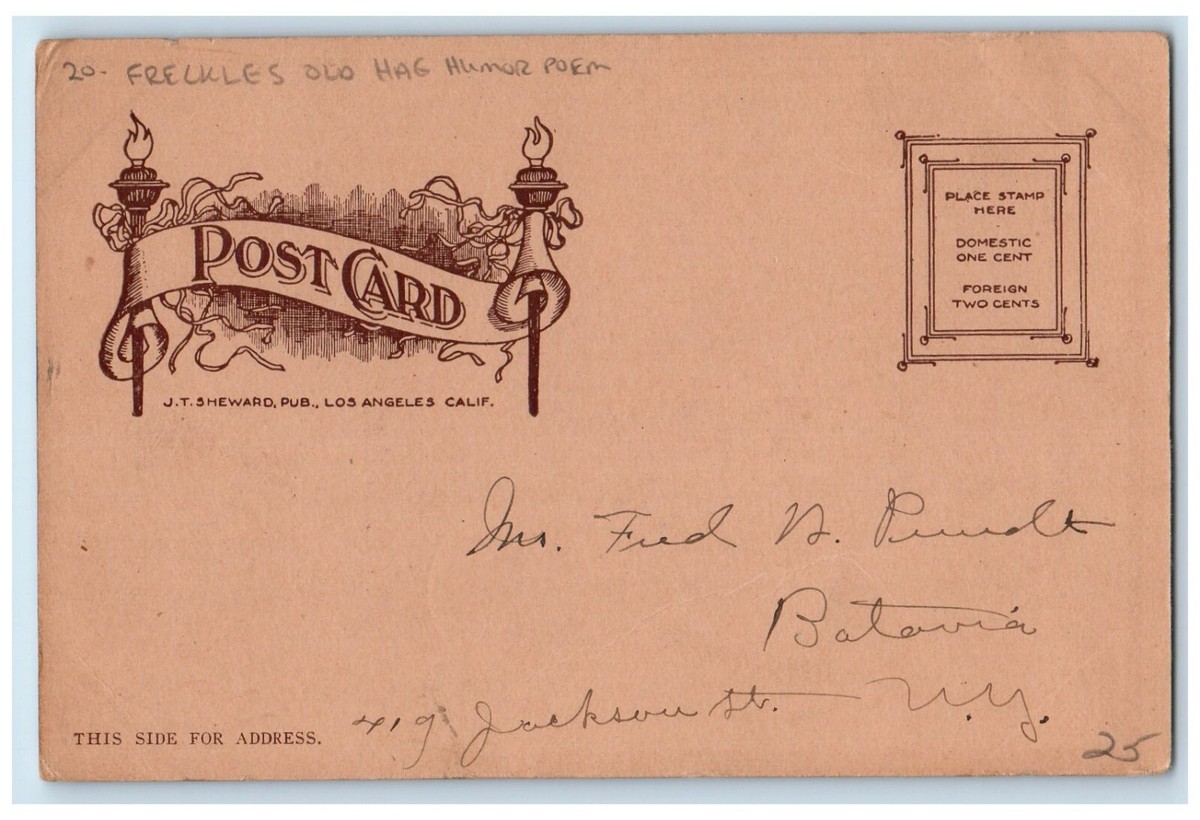 20- FRECKLES OLD HAG HUMOR POEM
POST CARD
J.T. SHEWARD, PUB., LOS ANGELES CALIF.
PLACE STAMP
HERE
DOMESTIC
ONE CENT
FOREIGN
TWO CENTS
Mrs. Fred
Batavia
419 Jackson St. N.Y.
THIS SIDE FOR ADDRESS.
25